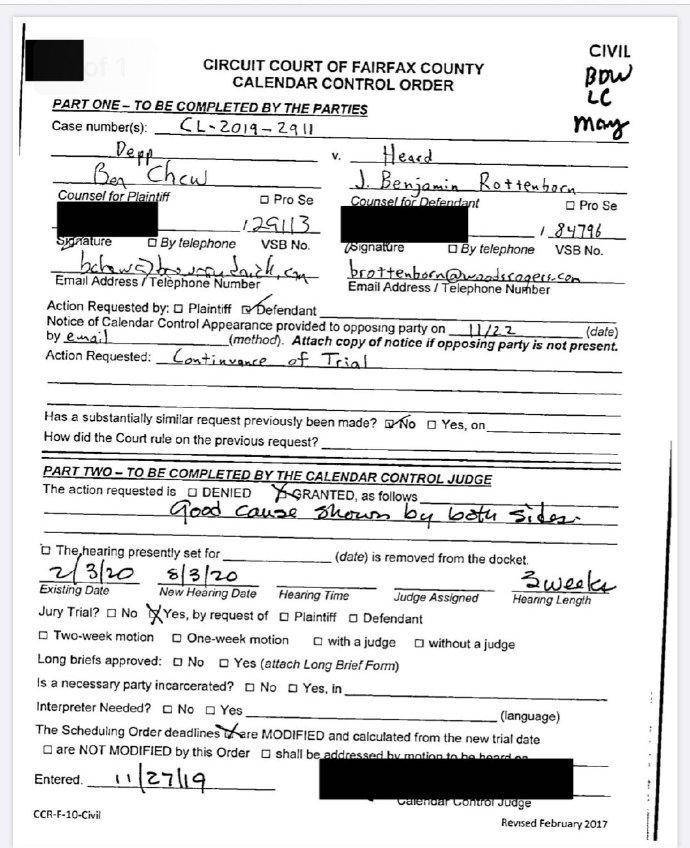 of 1
CIVIL
BDW
LC
May
CIRCUIT COURT OF FAIRFAX COUNTY
CALENDAR CONTROL ORDER
PART ONE – TO BE COMPLETED BY THE PARTIES
Case number(s): CL-2019-2911
Depp v. Heard
Ben Chew J. Benjamin Rottenborn
Counsel for Plaintiff ☐ Pro Se Counsel for Defendant ☐ Pro Se
129113 184796
Signature ☐ By telephone VSB No. Signature ☐ By telephone VSB No.
brottenborn@woodsrogers.com
Email Address / Telephone Number Email Address / Telephone Number
Action Requested by: ☐ Plaintiff ☑ Defendant
Notice of Calendar Control Appearance provided to opposing party on 11/22 (date)
by email (method). Attach copy of notice if opposing party is not present.
Action Requested: Continuance of Trial
Has a substantially similar request previously been made? ☑ No ☐ Yes, on
How did the Court rule on the previous request?
PART TWO – TO BE COMPLETED BY THE CALENDAR CONTROL JUDGE
The action requested is ☐ DENIED ☒ GRANTED, as follows
Good cause shown by both sides.
☐ The hearing presently set for (date) is removed from the docket.
2/3/20 8/3/20 3 weeks
Existing Date New Hearing Date Hearing Time Judge Assigned Hearing Length
Jury Trial? ☐ No ☒ Yes, by request of ☐ Plaintiff ☐ Defendant
☐ Two-week motion ☐ One-week motion ☐ with a judge ☐ without a judge
Long briefs approved: ☐ No ☐ Yes (attach Long Brief Form)
Is a necessary party incarcerated? ☐ No ☐ Yes, in
Interpreter Needed? ☐ No ☐ Yes (language)
The Scheduling Order deadlines ☒ are MODIFIED and calculated from the new trial date
☐ are NOT MODIFIED by this Order ☐ shall be addressed by motion to be heard on
Entered. 11/27/19
Calendar Control Judge
CCR-F-10-Civil
Revised February 2017